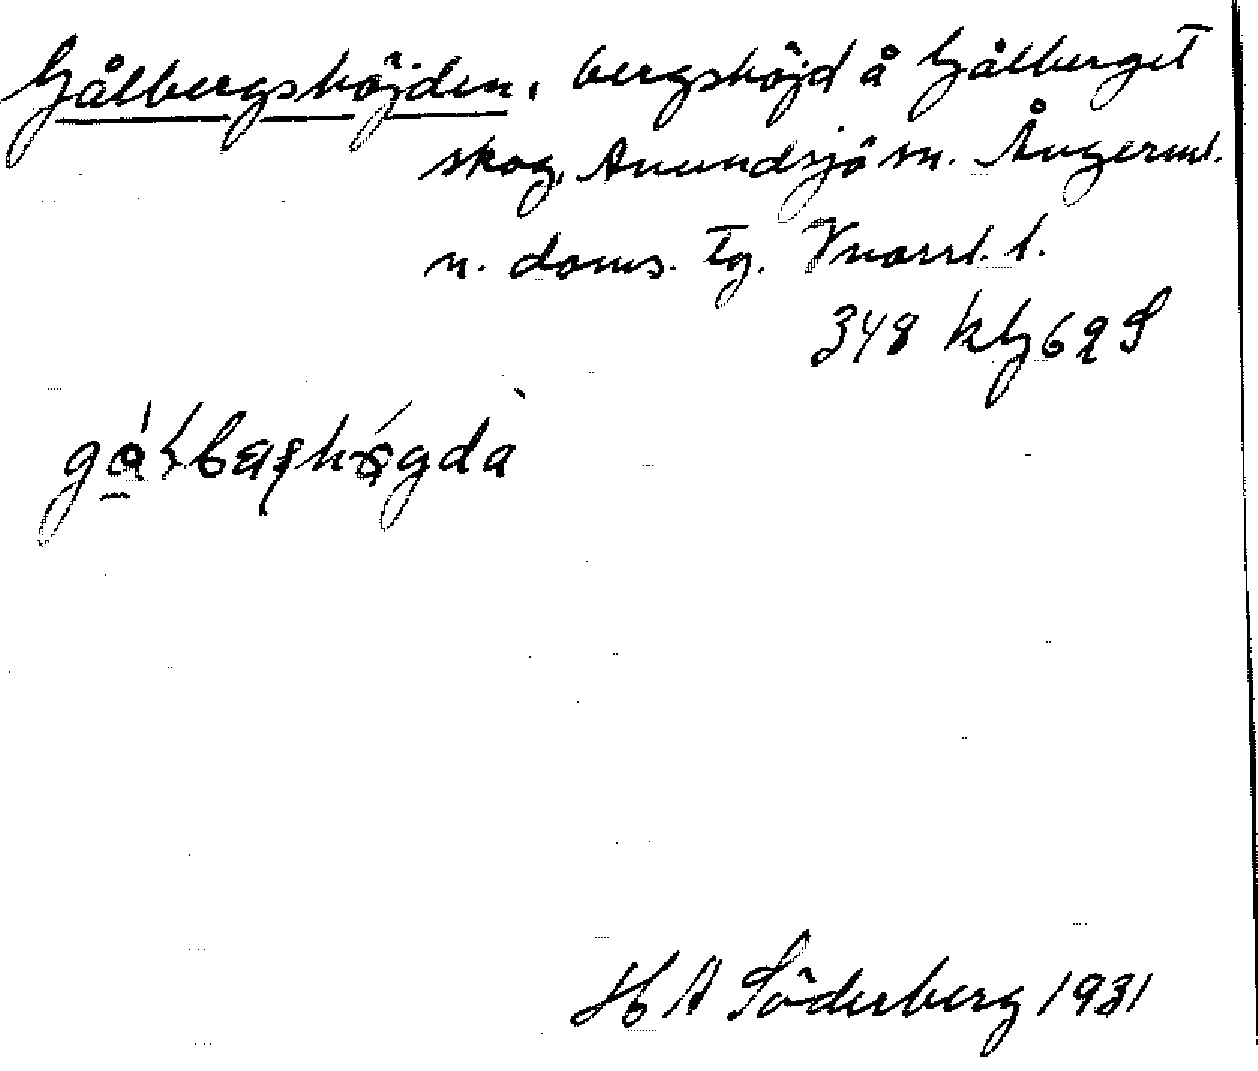 Gålbergshöjden, bergshöjd å Gålberget
skog, Anundsjö sn. Ångerml.
n. doms. tg. Vnorrl. l.
348 kbg 62 S
H A Söderberg 1931